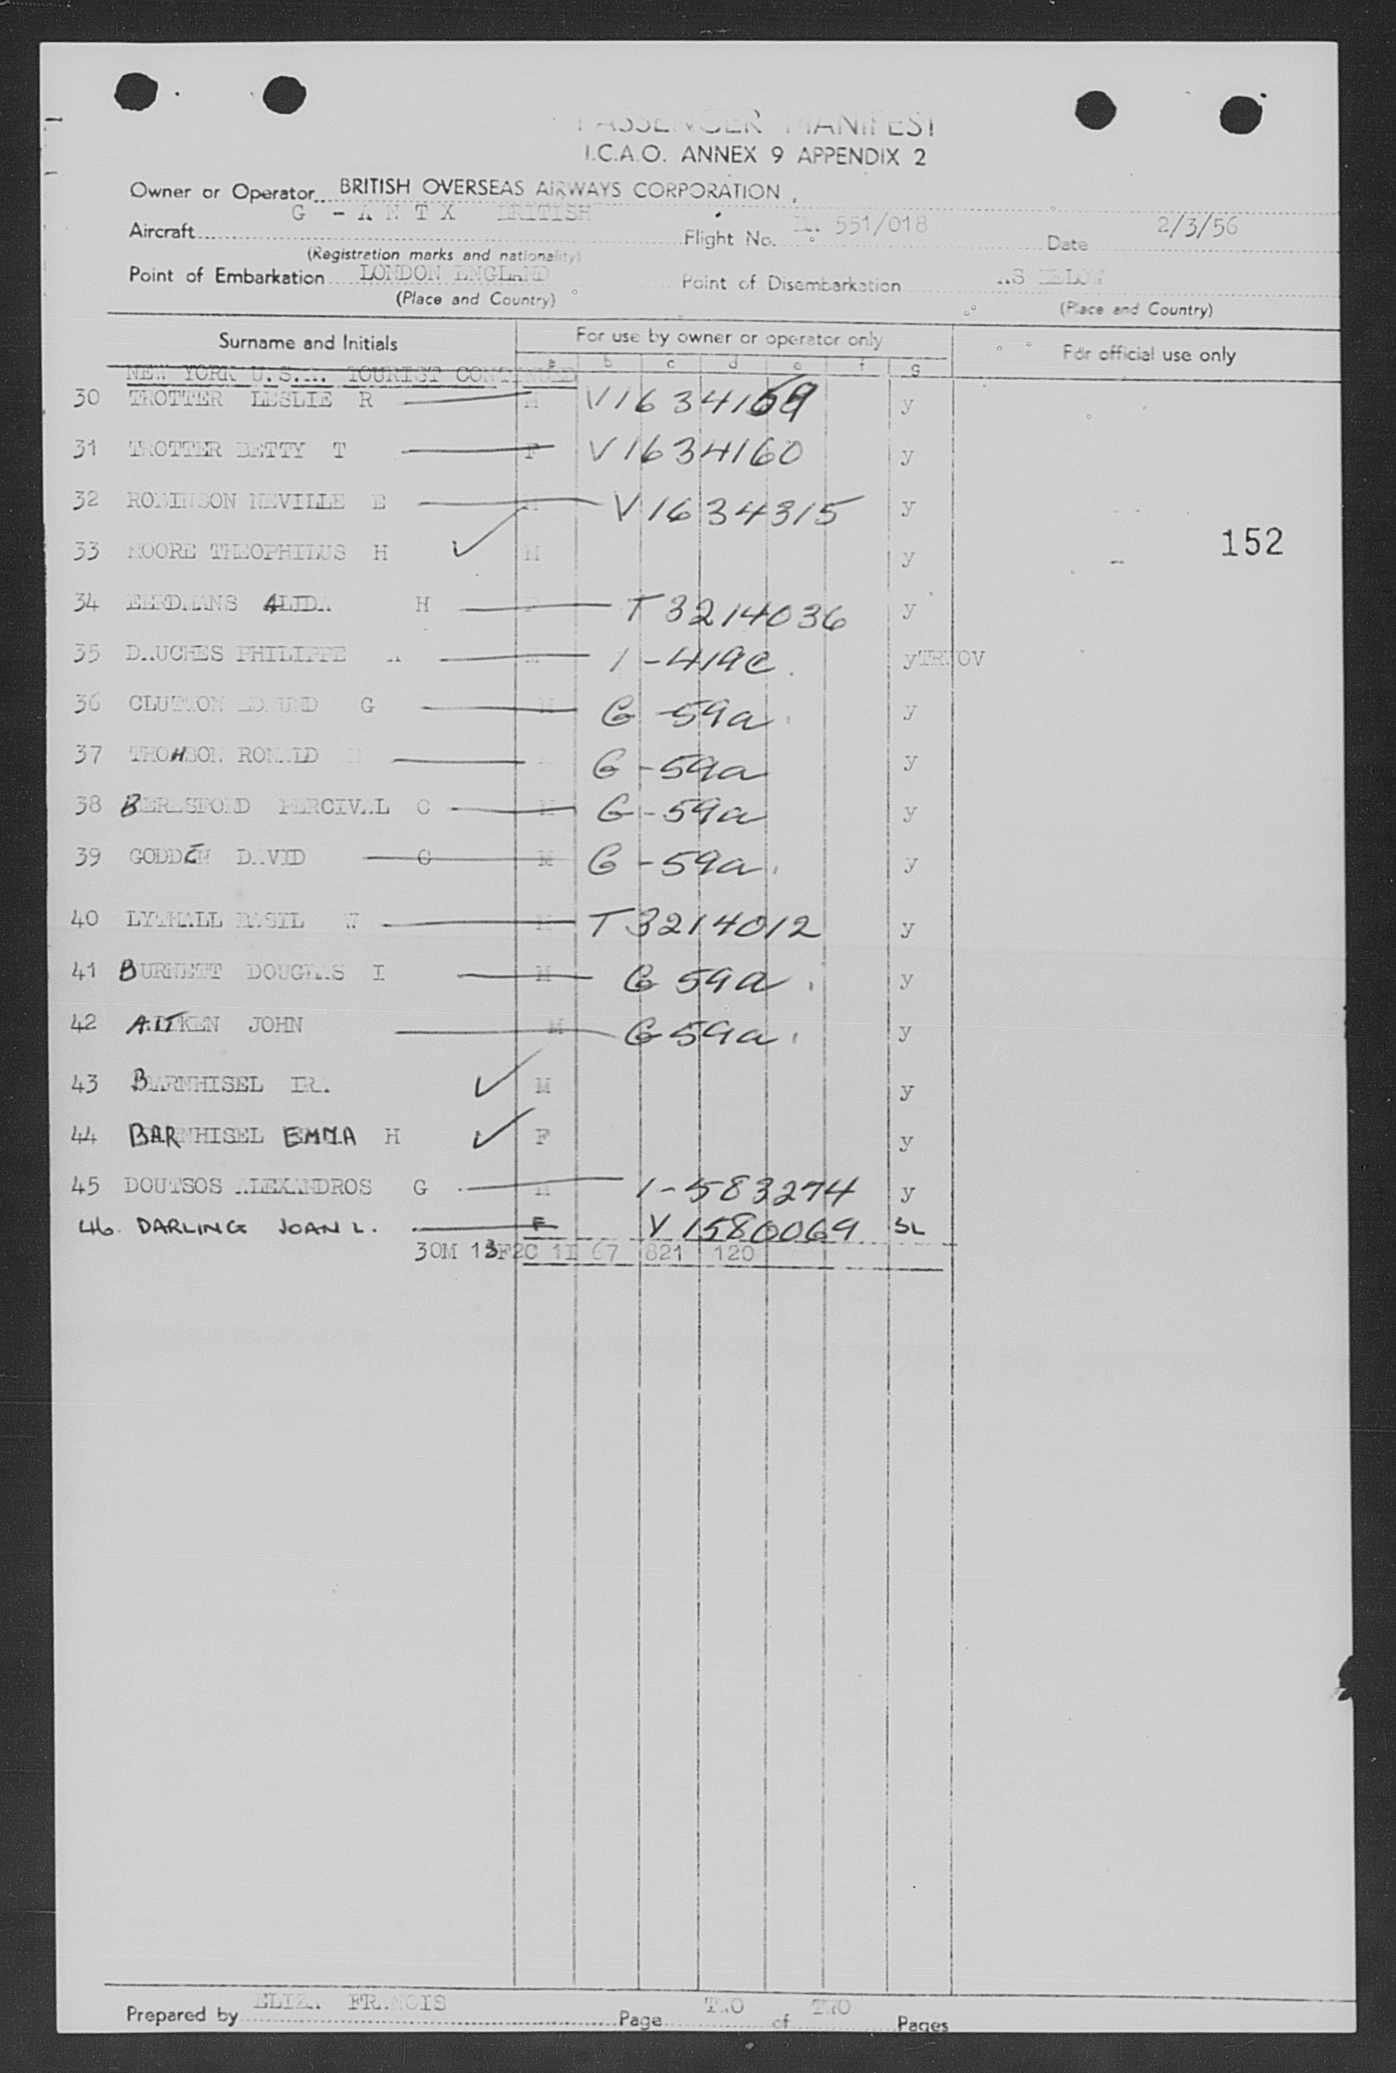 PASSENGER MANIFEST
I.C.A.O. ANNEX 9 APPENDIX 2
Owner or Operator BRITISH OVERSEAS AIRWAYS CORPORATION
Aircraft G - A N T X BRITISH Flight No. 551/018 Date 2/3/56
(Registration marks and nationality)
Point of Embarkation LONDON ENGLAND Point of Disembarkation AS BELOW
(Place and Country) (Place and Country)
Surname and Initials For use by owner or operator only For official use only
a b c d e f g
NEW YORK U.S.A. TOURIST CONTINUED
30 TROTTER LESLIE R M V1634159 y
31 TROTTER BETTY T F V1634160 y
32 ROBINSON NEVILLE E M V1634315 y
152
33 MOORE THEOPHILUS H M y
34 EERDMANS ALIDA H F T3214036 y
35 DAUCHES PHILIPPE A M 1-419c y
36 CLUTTON EDMUND G M G-59a y
37 THOMSON RONALD G-59a y
38 BERESFORD PERCIVAL C M G-59a y
39 GODDEN DAVID G M G-59a y
40 LYTHALL BASIL W M T3214012 y
41 BURNETT DOUGLAS I M G 59a y
42 AITKEN JOHN M G 59a y
43 BARNHISEL IRA M y
44 BARNHISEL EMMA H F y
45 DOUTSOS ALEXANDROS G M 1-583274 y
46. DARLING JOAN L. F V1580069 SL
30M 13F 2C 1I 67 821 120
Prepared by ELIZ. FRANCIS Page TWO of TWO Pages